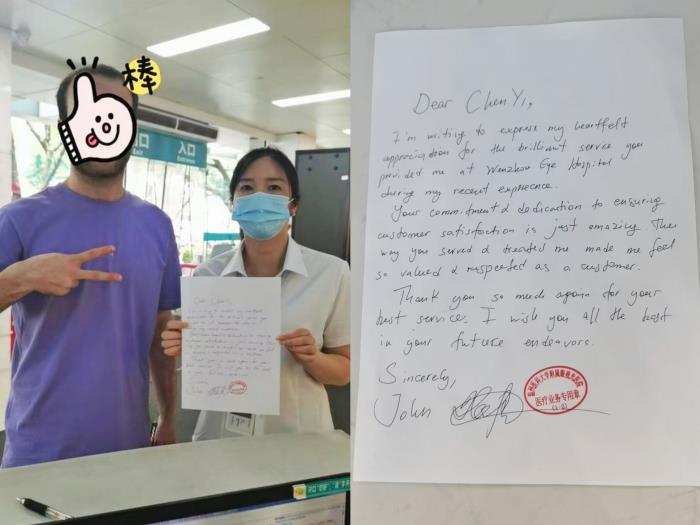 棒
出口
Exit
入口
Entrance
Dear ChenYi,
I'm writing to express my heartfelt
appreciation for the brilliant service you
provided me at Wenzhou Eye Hospital
during my recent expreence.
Your commitment & dedication to ensuring
customer satisfaction is just amazing. The
way you served & treated me made me feel
so valued & respected as a customer.
Thank you so much again for your
best service. I wish you all the best
in your future endeavors.
Sincerely,
John
温州医科大学附属眼视光医院
医疗业务专用章
(1-2)